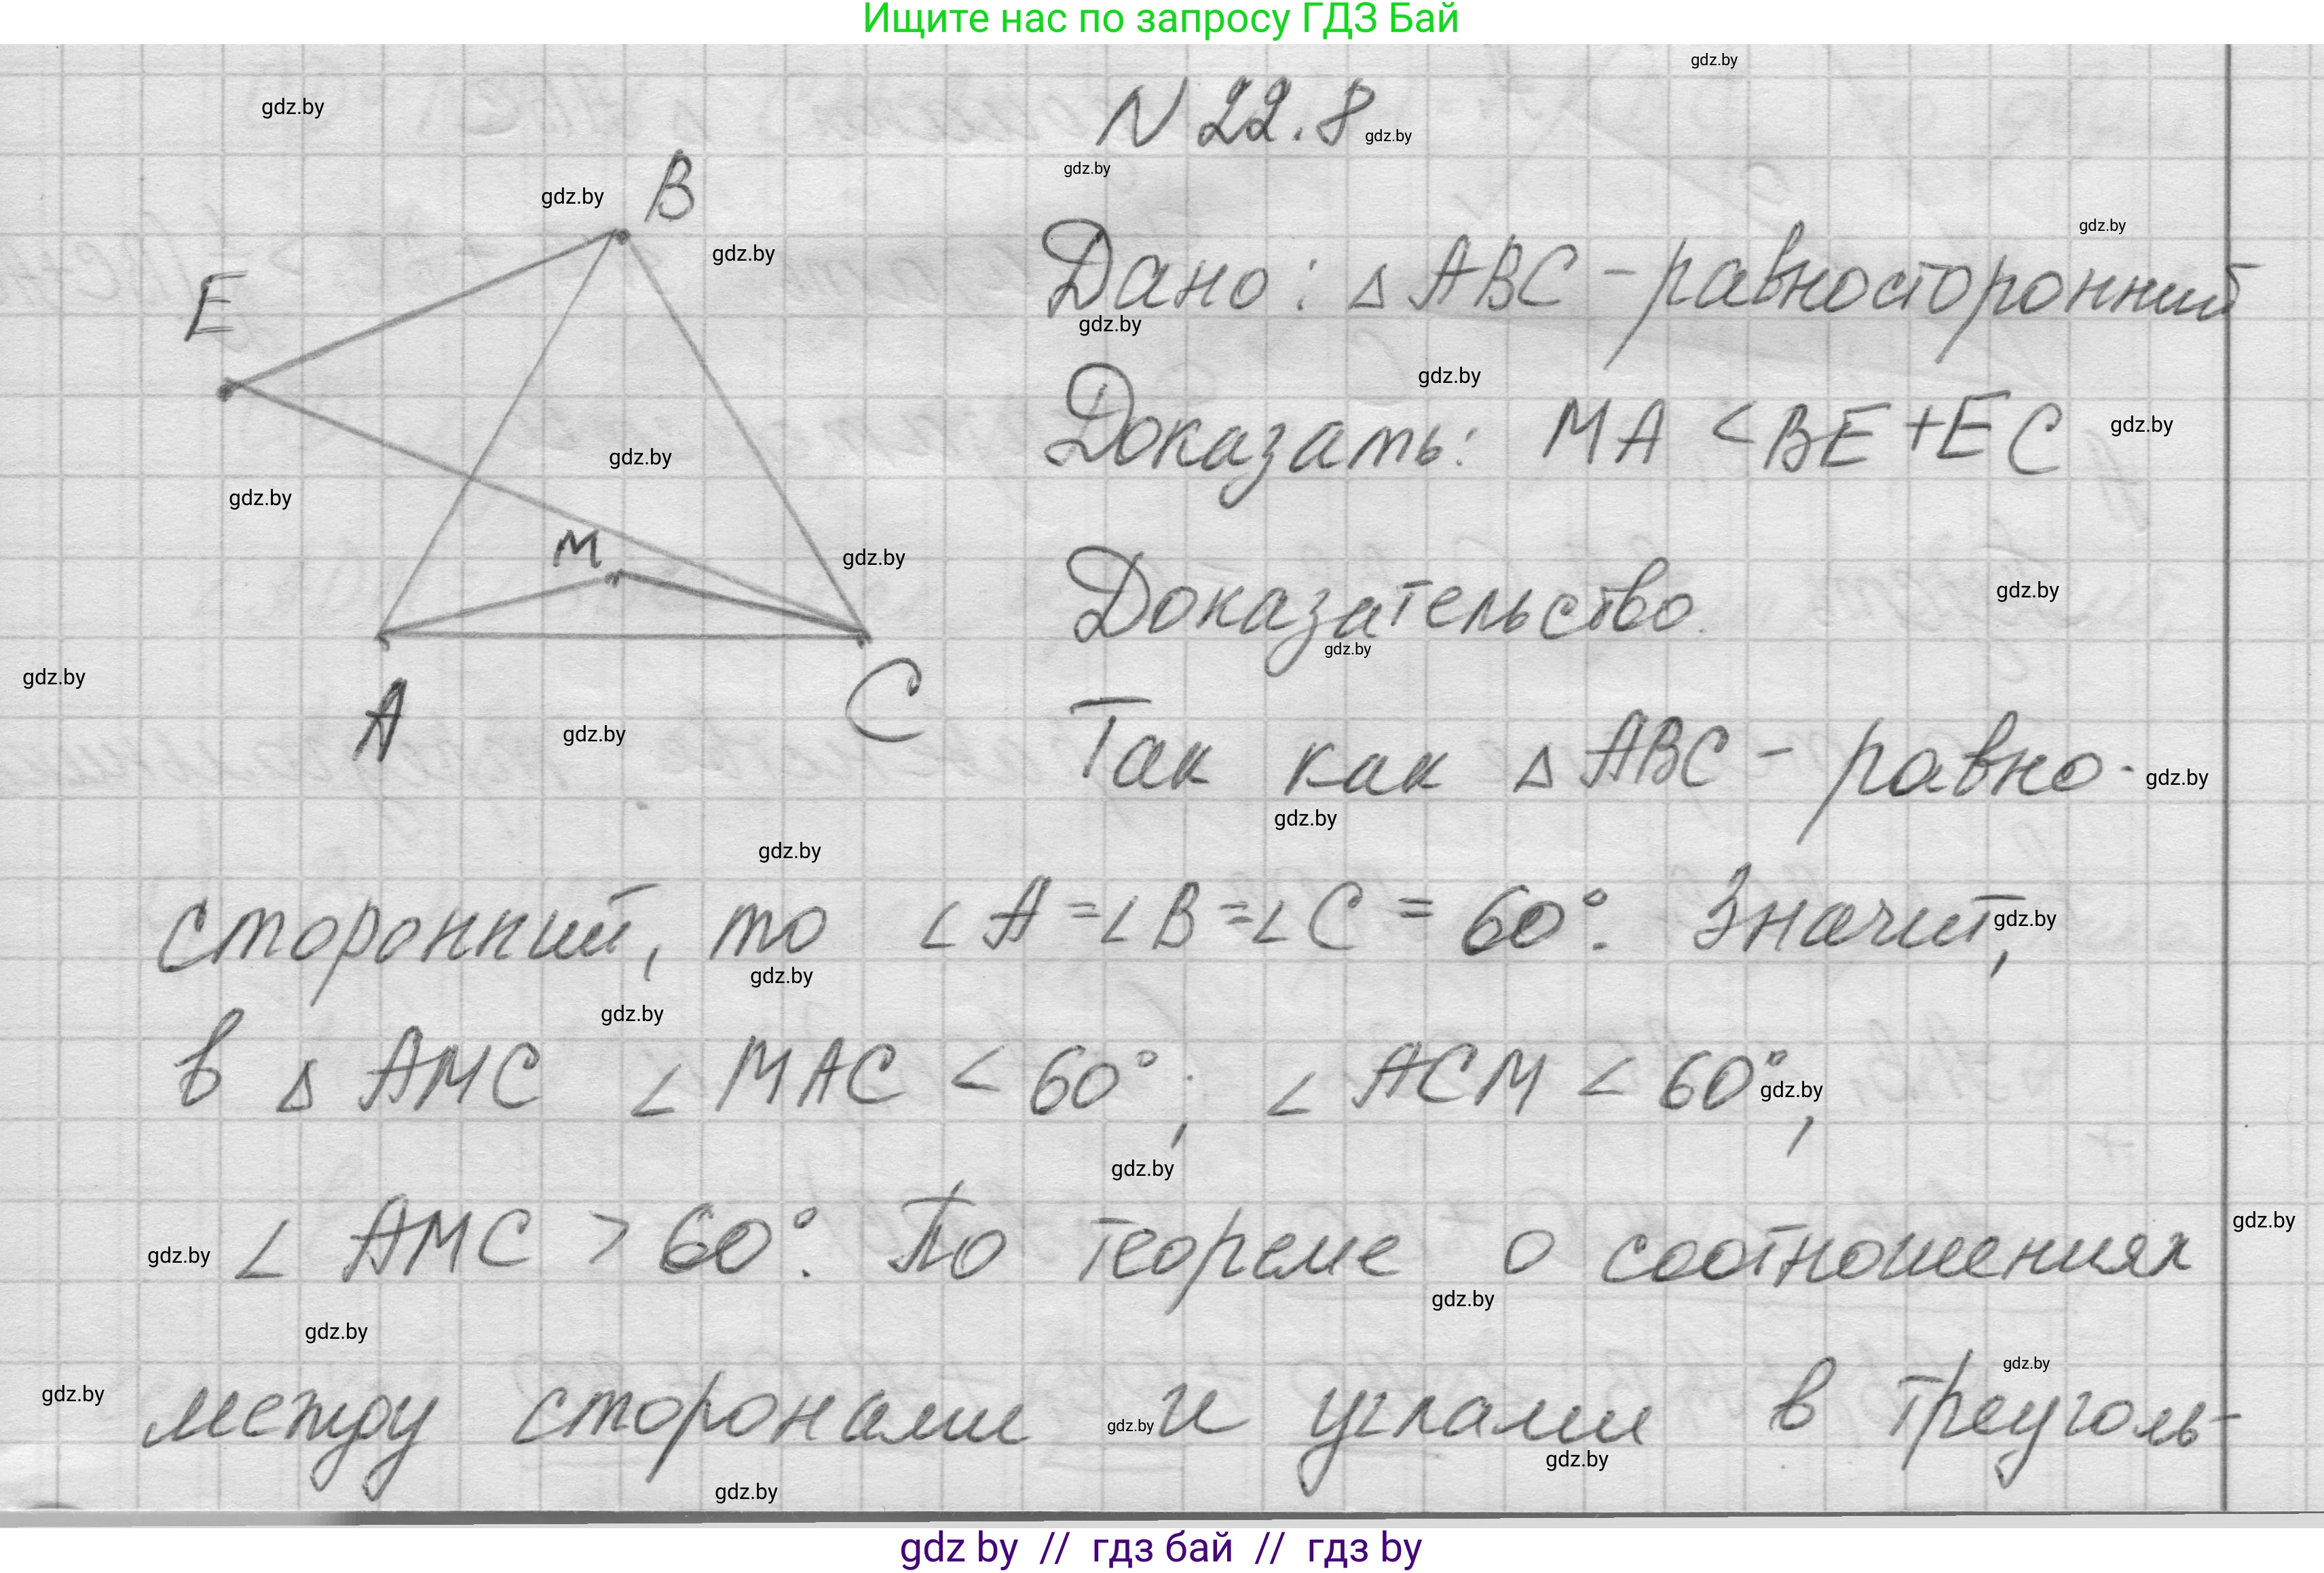 Ищите нас по запросу ГДЗ Бай
gdz.by
gdz.by
N 22.8
gdz.by
gdz.by
gdz.by
B
gdz.by
gdz.by
E
Дано: △ ABC - равносторонний
gdz.by
gdz.by
Доказать: MA < BE + EC
gdz.by
gdz.by
gdz.by
M
gdz.by
Доказательство.
gdz.by
gdz.by
gdz.by
A
C
gdz.by
Так как △ ABC - равно-
gdz.by
gdz.by
gdz.by
сторонний, то ∠ A = ∠ B = ∠ C = 60°. Значит,
gdz.by
gdz.by
gdz.by
в △ AMC ∠ MAC < 60°; ∠ ACM < 60°,
gdz.by
gdz.by
∠ AMC > 60°. По теореме о соотношениях
gdz.by
gdz.by
gdz.by
gdz.by
gdz.by
между сторонами и углами в треуголь-
gdz.by
gdz.by
gdz.by
gdz.by
gdz by // гдз бай // гдз by